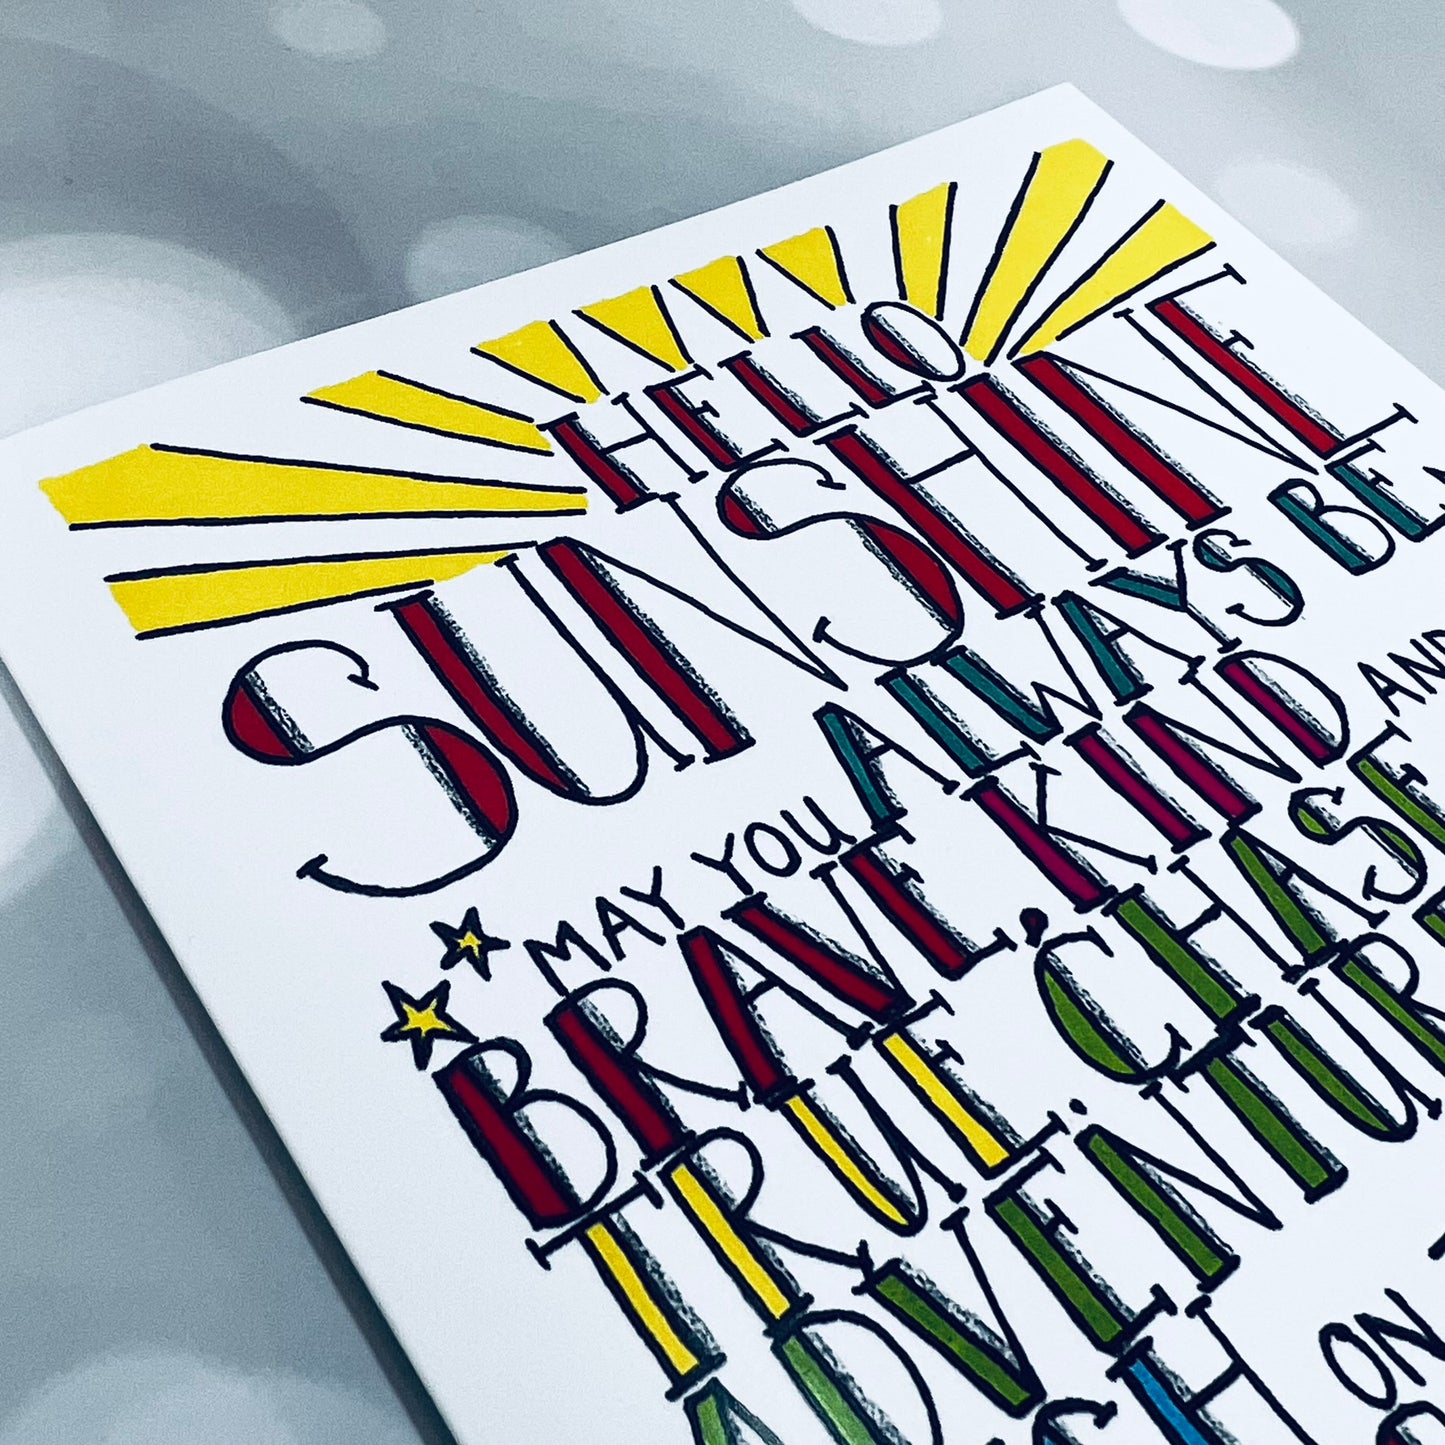 HELLO
SUNSHINE
MAY YOU ALWAYS BE
BRAVE, KIND AND
TRUE. CHASE
ADVENTURE
ON